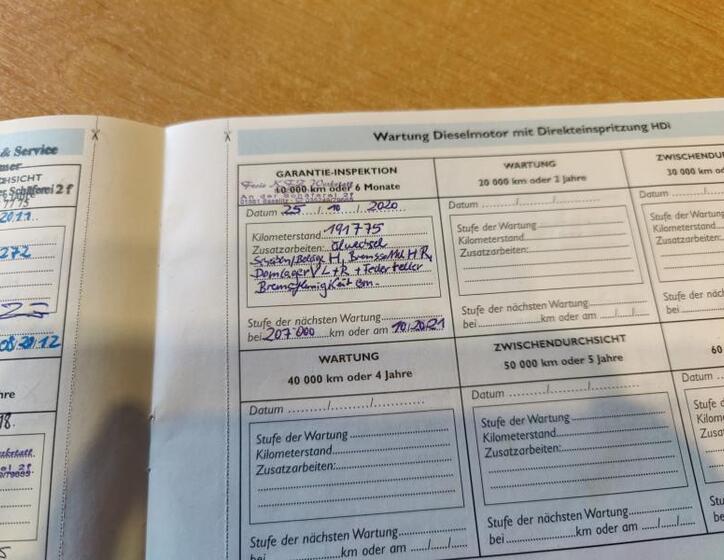 & Service
HSICHT
Schäferei 2 f
2011
272
08 20 12
hre
Wartung Dieselmotor mit Direkteinspritzung HDi
GARANTIE-INSPEKTION
10 000 km oder 6 Monate
An der Schäferei 2f
Datum 25 / 10 / 2020
Kilometerstand 191775
Zusatzarbeiten: Ölwechsel
Scheiben/Beläge H, Bremssattel H R,
Domlager V L+R + Federteller
Bremsflüssigkeit ern.
Stufe der nächsten Wartung
bei 207000 km oder am 10/2021
WARTUNG
20 000 km oder 2 Jahre
Datum ....../....../............
Stufe der Wartung
Kilometerstand
Zusatzarbeiten:
Stufe der nächsten Wartung
bei ............km oder am ..../..../....
ZWISCHENDURC
30 000 km o
Datum
Stufe der W
Kilometersta
Zusatzarbeit
Stufe der n
bei
WARTUNG
40 000 km oder 4 Jahre
Datum ....../....../............
Stufe der Wartung
Kilometerstand
Zusatzarbeiten:
Stufe der nächsten Wartung
bei ............km oder am ..../..../....
ZWISCHENDURCHSICHT
50 000 km oder 5 Jahre
Datum ....../....../............
Stufe der Wartung
Kilometerstand
Zusatzarbeiten:
Stufe der nächsten Wartung
bei ............km oder am ..../..../....
60
Datum
Stufe
Kilom
Zusat
Stufe
bei